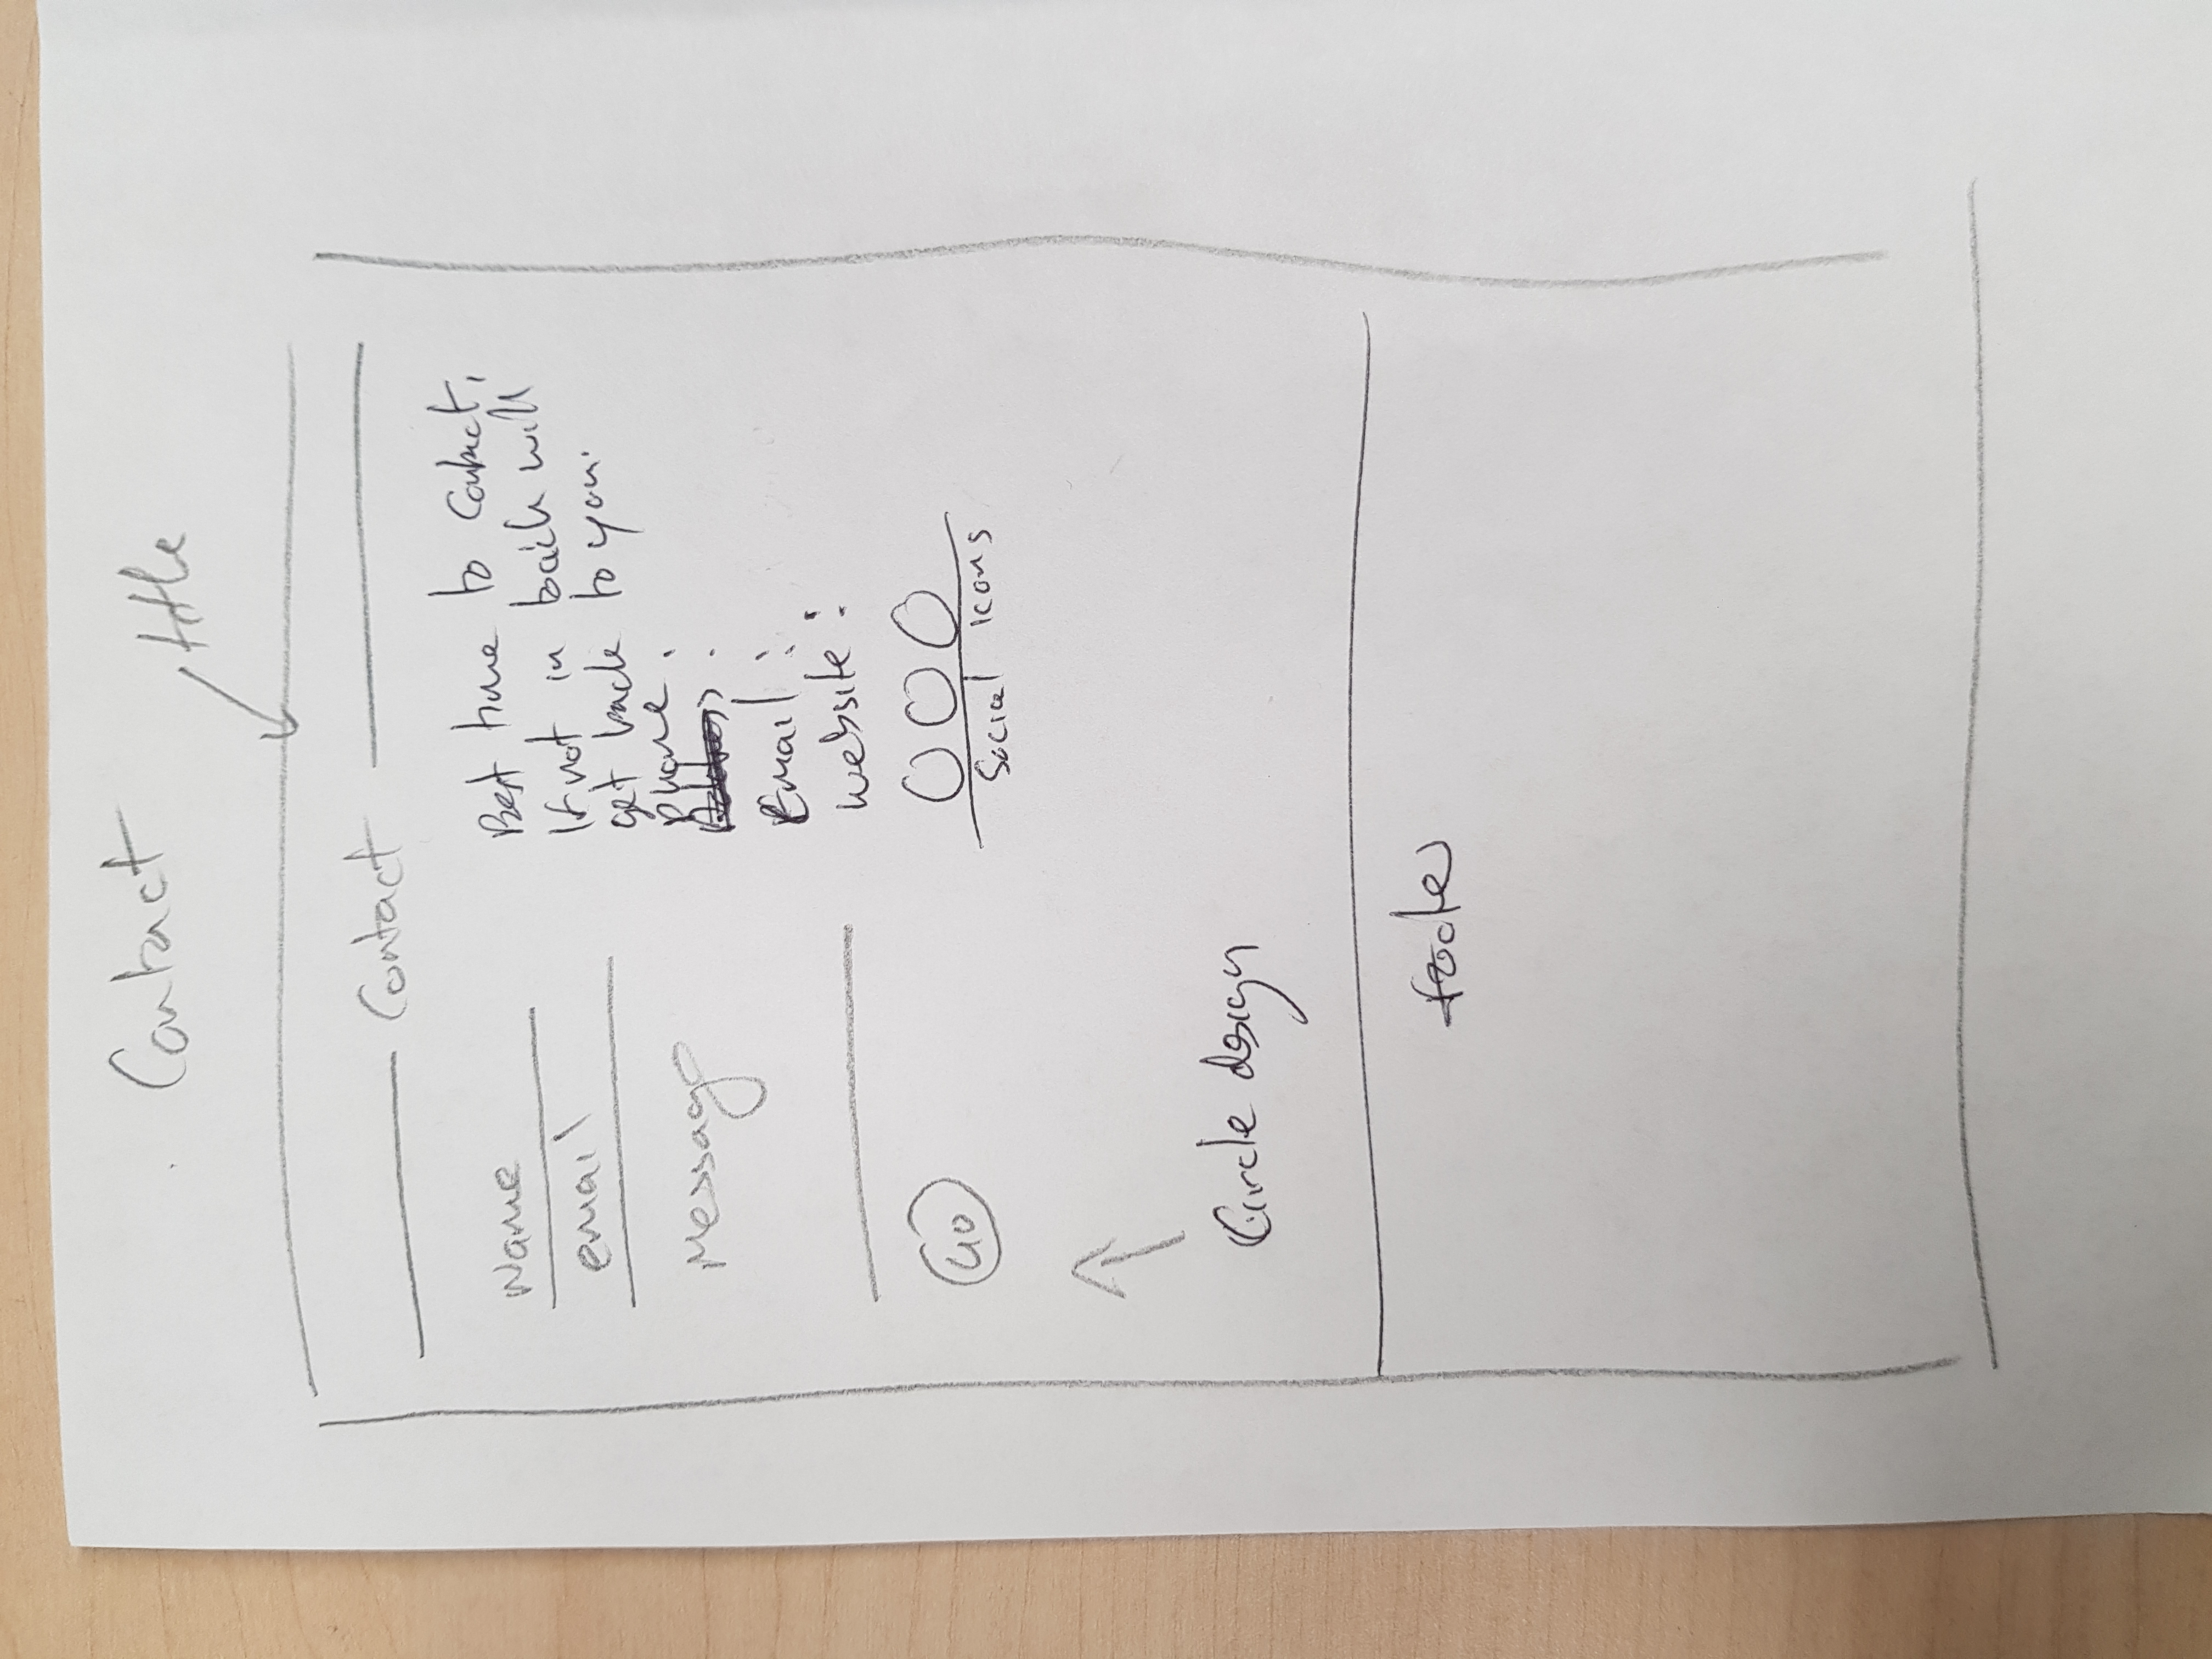 Contact
title
Contact
Name
email
Message
Go
Circle design
Best time to Contact,
If not in back will
get back to you.
phone :
Address :
Email :
website :
Social icons
footer